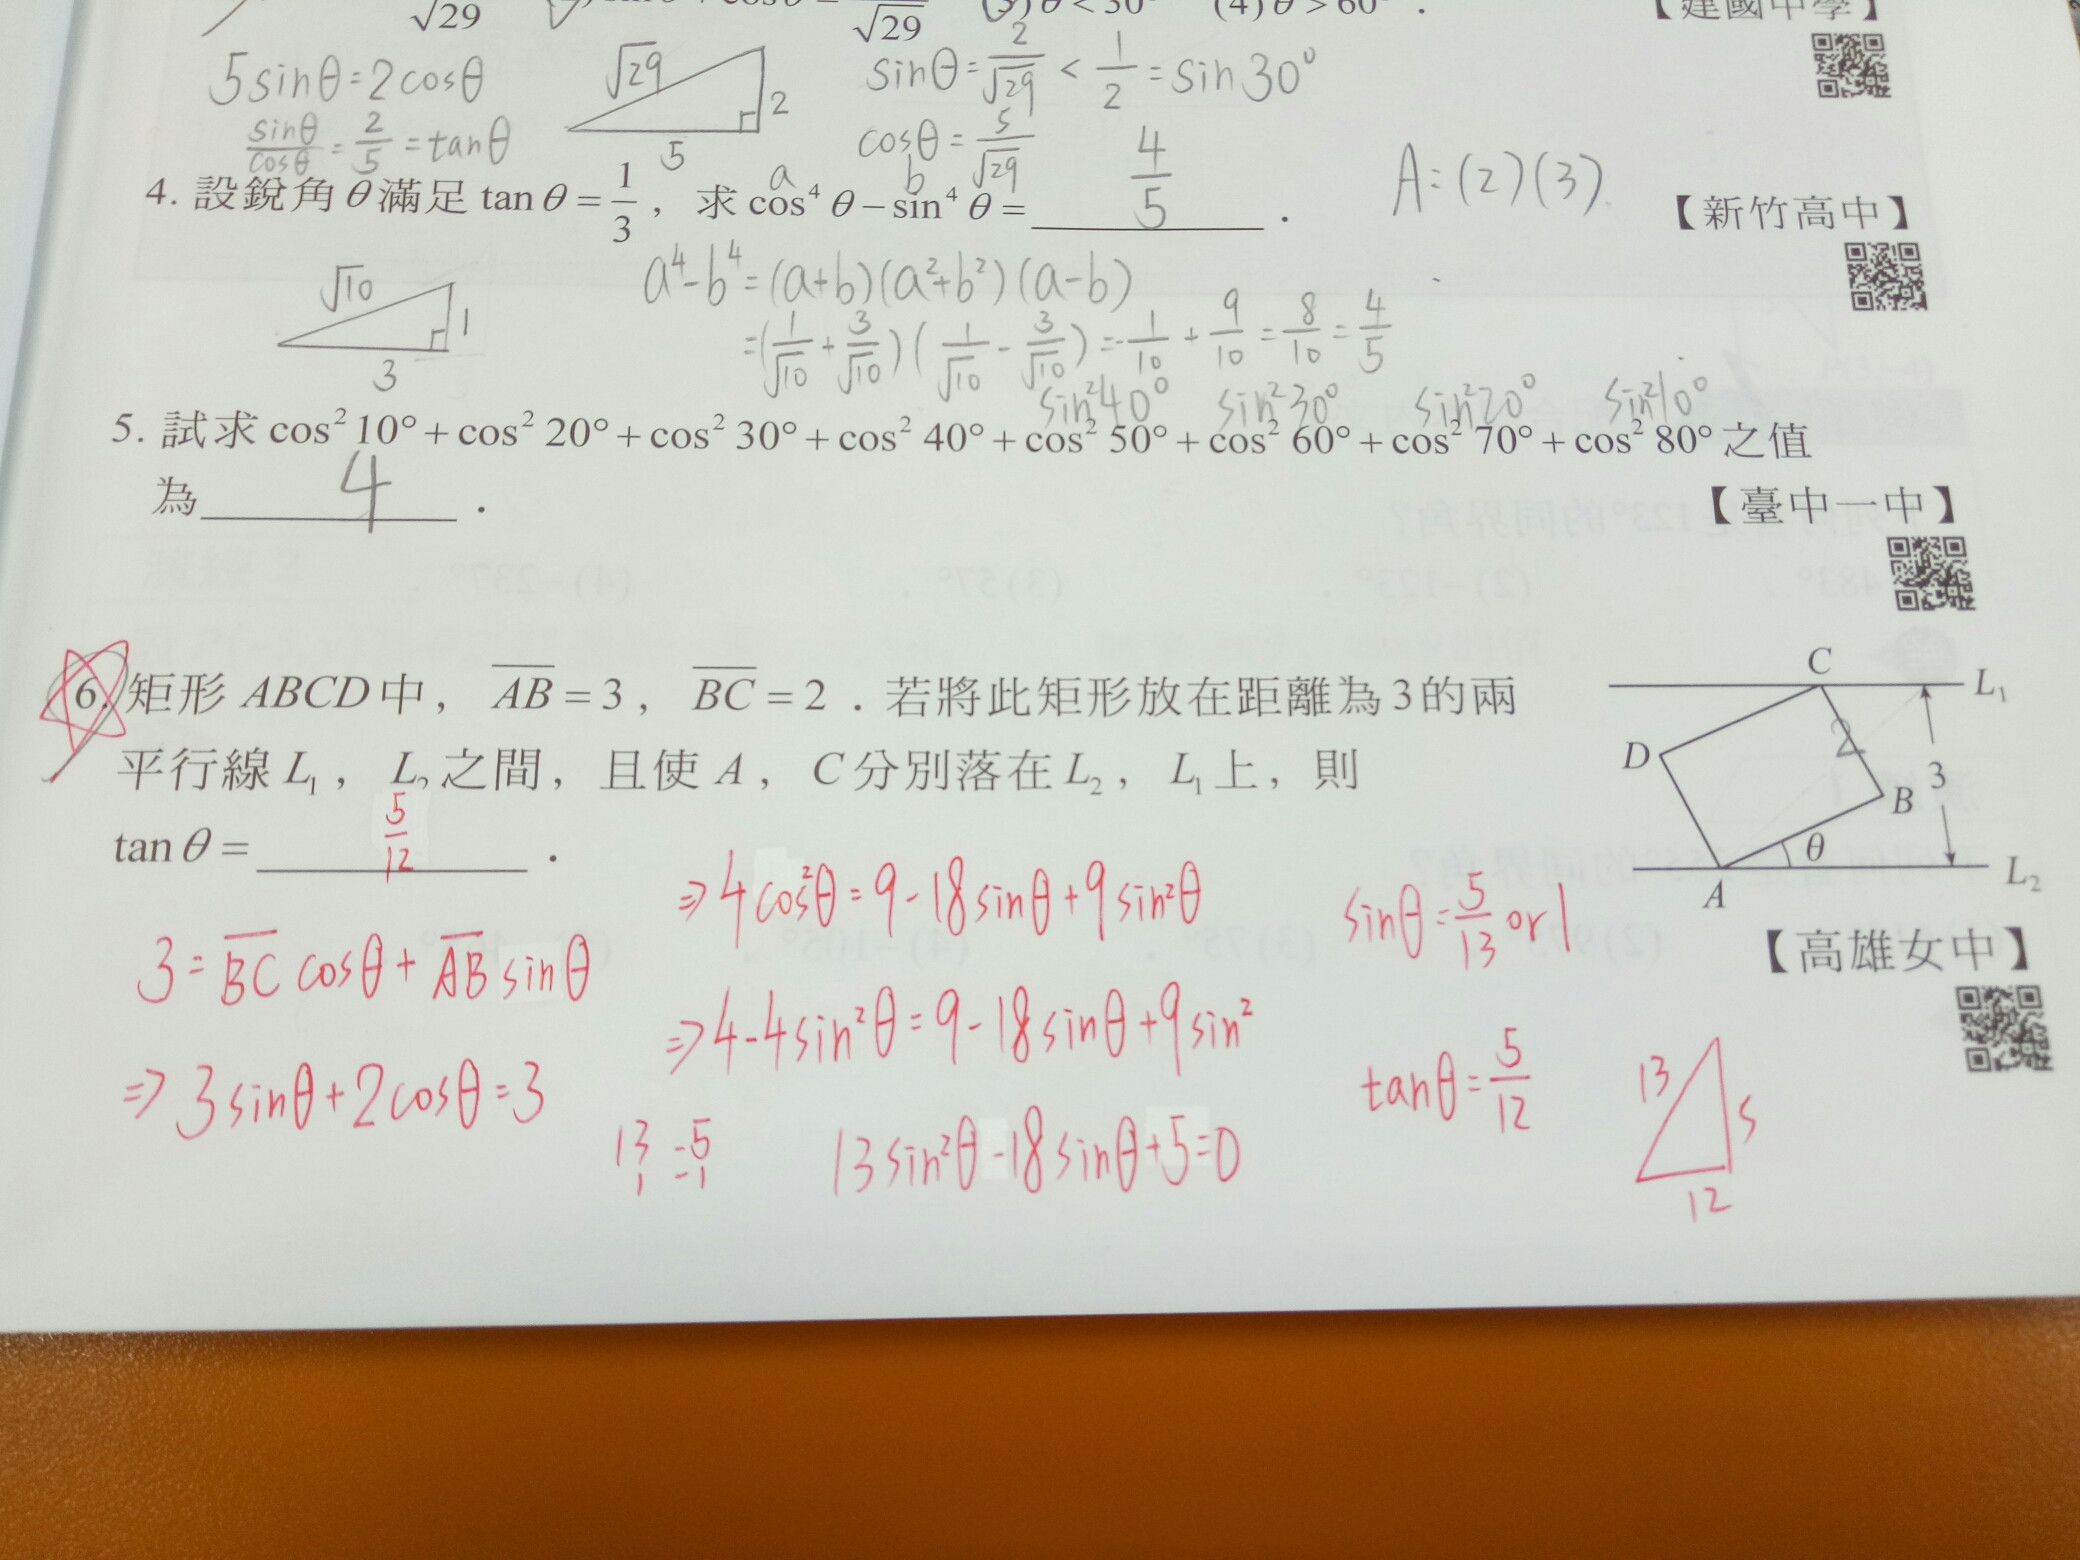 √29 sinθ+cosθ= √29 (3) θ<30° (4) θ>60° .
【建國中學】
5sinθ=2cosθ
sinθ/cosθ = 2/5 = tanθ
√29 2 5
sinθ=2/√29 < 1/2 = sin30°
cosθ=5/√29
A=(2)(3).
4. 設銳角θ滿足 tanθ=1/3, 求 cos⁴θ−sin⁴θ= 4/5 .
a b
【新竹高中】
√10 1 3
a⁴-b⁴=(a+b)(a²+b²)(a-b)
=(1/√10+3/√10)(1/√10-3/√10)=-1/10+9/10=8/10=4/5
sin²40° sin²30° sin²20° sin²10°
5. 試求 cos²10°+cos²20°+cos²30°+cos²40°+cos²50°+cos²60°+cos²70°+cos²80°之值
為 4 .
【臺中一中】
6. 矩形 ABCD 中, AB=3, BC=2.若將此矩形放在距離為3的兩
平行線 L₁, L₂之間, 且使 A, C分別落在 L₂, L₁上, 則
tanθ= 5/12 .
C L₁
D 2 3
B
θ
A L₂
【高雄女中】
3=BC cosθ+AB sinθ
⇒3sinθ+2cosθ=3
⇒4cos²θ=9-18sinθ+9sin²θ
⇒4-4sin²θ=9-18sinθ+9sin²
13 -5
1 -1
13sin²θ-18sinθ+5=0
sinθ=5/13 or 1
tanθ=5/12
13 5
12